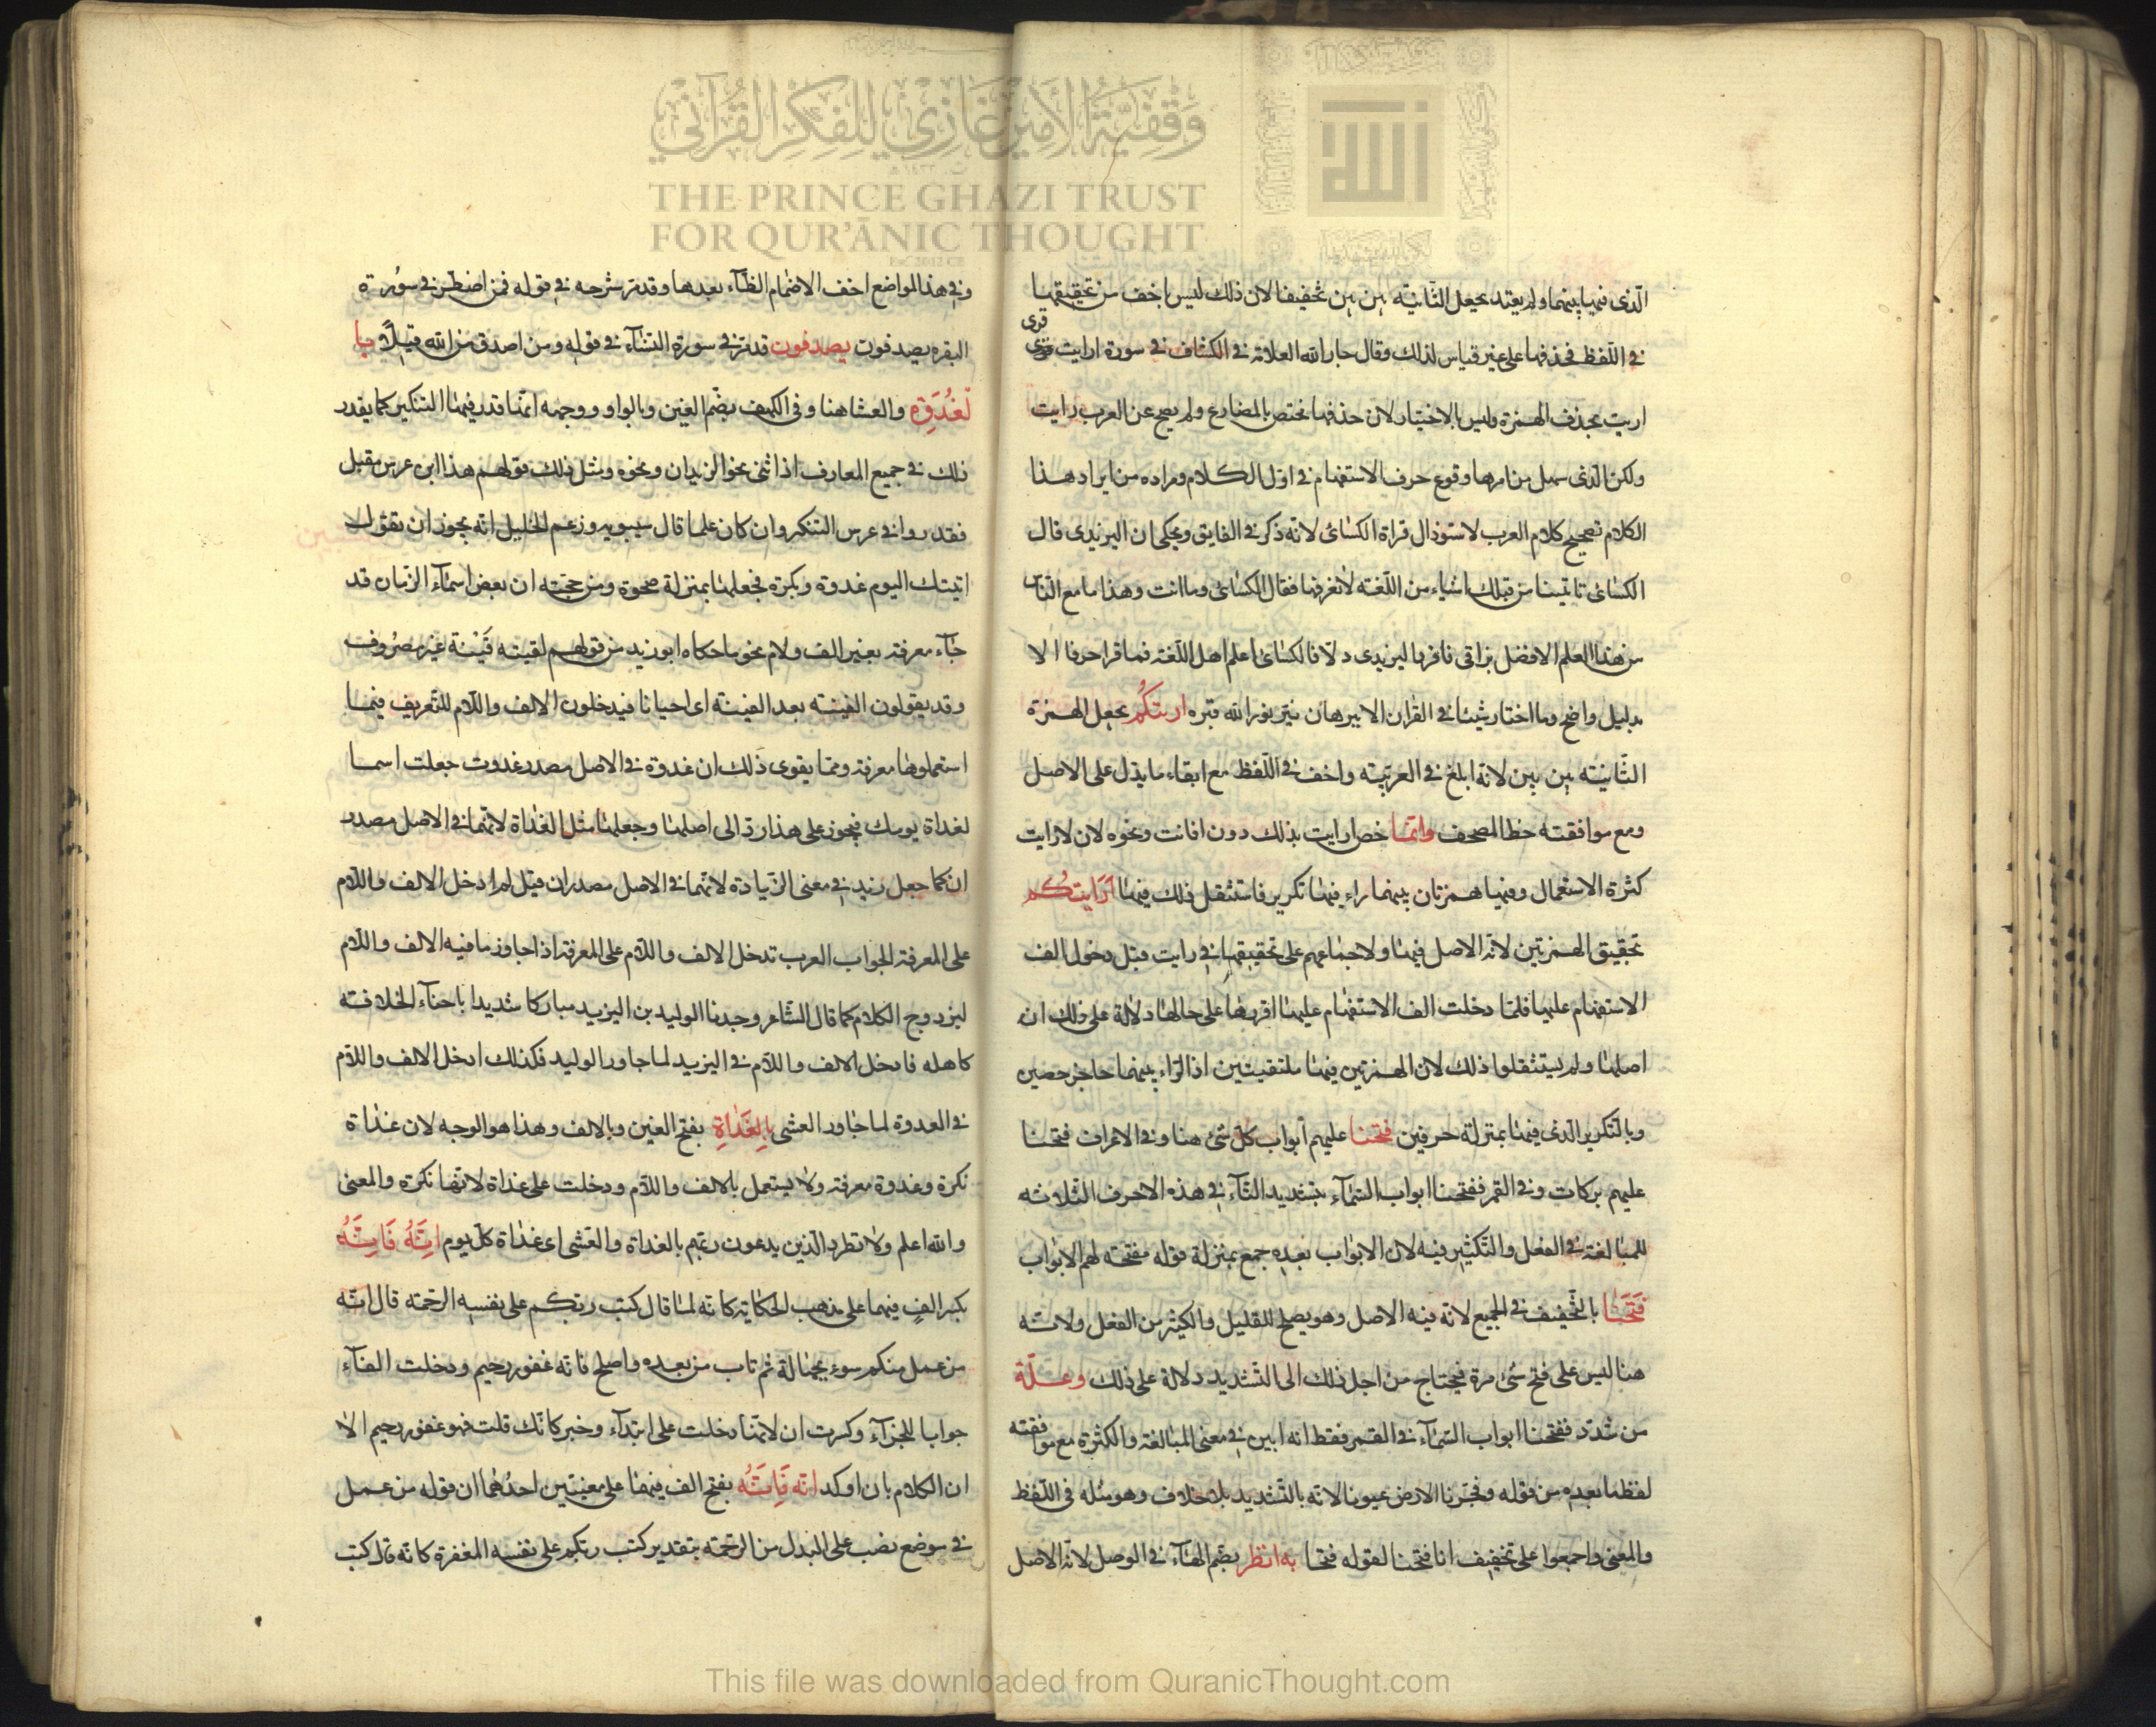 وقفية الأمير غازي للفكر القرآني
THE PRINCE GHAZI TRUST
FOR QUR'ĀNIC THOUGHT
الّذى فيها بينهما ولم يعتد بجعل الثانية بين بين تخفيفا لان ذلك ليس باخف من تحقيقها
قرى
فى اللفظ فحذفها على غير قياس لذلك وقال جار الله العلامة فى الكشاف فى سورة ارايت
اريت بحذف الهمزة وليس بالاختيار لان حذفها مختص بالمضارع ولم يصح عن العرب رايت
ولكن الذى سهل من امرها وقوع حرف الاستفهام فى اول الكلام ومراده من ايراد هذا
الكلام تصحيح كلام العرب لا قراة الكسائى لانه ذكر فى الفايق ويحكى ان اليزيدى قال
الكسائى تاتينا من قبلك اشياء من اللغة لا نعرفها فقال الكسائى وما انت وهذا ما مع الناس
من هذا العلم الا فضل بزاقى فالكسائى اعلم اهل اللغة فما قرا حرفا الا
بدليل واضح وما اختار شيئا فى القران الا ببرهان نير نور الله قبره اريتكم بجعل الهمزة
الثانية بين بين لانه ابلغ فى العربية واخف فى اللفظ مع ابقاء ما يدل على الاصل
ومع موافقته خط المصحف وانما خص ارايت بذلك دون افانت ونحوه لان لارايت
كثرة الاستعمال وفيها همزتان بينهما راء فيها تكرير فاستثقل ذلك فيها ارايتكم
تحقيق الهمزتين لانه الاصل فيها ولاجماعهم على تحقيقها فى رايت قبل دخول الف
الاستفهام عليها فلما دخلت الف الاستفهام عليها اقرها على حالها دلالة على ذلك ان
اصلها ولم يستثقلوا ذلك لان الهمزتين فيها ملتقيتين اذ الراء بينهما حاجز حصين
وبالتكرير الذى فيها بمنزلة حرفين فتحنا عليهم ابواب كل شئ هنا وفى الاعراف فتحنا
عليهم بركات وفى القمر ففتحنا ابواب السماء بتشديد التاء فى هذه الاحرف الثلاثة
للمبالغة فى الفعل والتكثير فيه لان الابواب بعده جمع بمنزلة قوله مفتحة لهم الابواب
فتحنا بالتخفيف فى الجميع لانه فيه الاصل وهو يصلح للقليل والكثير من الفعل ولانه
هنا ليس على فتح شئ مرة فيحتاج من اجل ذلك الى التشديد دلالة على ذلك وعلة
من شدد ففتحنا ابواب السماء فى القمر فقط انه ابين فى معنى المبالغة والكثرة مع موافقته
لفظ ما بعده من قوله وفجرنا الارض عيونا لانه بالتشديد بلا خلاف وهو مثله فى اللفظ
والمعنى واجمعوا على تخفيف انا فتحنا لقوله فتحا به انظر بضم الهاء فى الوصل لانه الاصل
وفى هذا المواضع اخف لانضمام الظاء بعدها وقد مر شرحه فى قوله فمن اضطر فى سورة
البقره يصدفون يصدفون قد مر فى سورة النساء فى قوله ومن اصدق من الله قيلا با
لغدوة والعشا هنا وفى الكهف بضم الغين وبالواو ووجهه انما قدر فيها التنكير كما يقدر
ذلك فى جميع المعارف اذا ثنى نحو الزيدان ونحوه ومثل ذلك قولهم هذا ابن عرس مقبل
فقدروا فى عرس التنكير وان كان علما قال سيبويه وزعم الخليل انه يجوز ان تقول
اتيتك اليوم غدوة وبكرة فجعلها بمنزلة ضحوة ومن حجته ان بعض اسماء الزمان قد
جاء معرفة بغير الف ولام نحو ما حكاه ابو زيد من قولهم لقيته فينة غير مصروف
وقد يقولون الفينة بعد الفينة اى احيانا فيدخلون الالف واللام للتعريف فيها
استعملوها معرفة ومما يقوى ذلك ان غدوة فى الاصل مصدر غدوت جعلت اسما
لغداة يومك فيجوز على هذا ردة الى اصلها وجعلها مثل الغداة لانهما فى الاصل مصدر
ان كما جعل زيد فى معنى الزيادة لانهما فى الاصل مصدران قيل لم ادخل الالف واللام
على المعرفة الجواب العرب تدخل الالف واللام على المعرفة اذا جاوز ما فيه الالف واللام
ليزدوج الكلام كما قال الشاعر وجدنا الوليد بن اليزيد مباركا شديدا باحناء الخلافة
كاهله فادخل الالف واللام فى اليزيد لما جاور الوليد فكذلك ادخل الالف واللام
فى الغدوة لما جاور العشى بالغداة بفتح الغين وبالالف وهذا هو الوجه لان غداة
نكرة وغدوة معرفة ولا يستعمل بالالف واللام ودخلت على غداة لانها نكرة والمعنى
والله اعلم ولا تطرد الذين يدعون ربهم بالغداة والعشى اى غداة كل يوم انه فانه
بكسر الف فيهما على مذهب الحكاية كانه لما قال كتب ربكم على نفسه الرحمة قال انه
من عمل منكم سوء بجهالة ثم تاب من بعده واصلح فانه غفور رحيم ودخلت الفاء
جوابا للجزاء وكسرت ان لانها دخلت على ابتداء وخبر كانك قلت فهو غفور رحيم الا
ان الكلام بان اوكد انه فانه بفتح الف فيهما على معنيين احدهما ان قوله من عمل
فى موضع نصب على البدل من الرحمة بتقدير كتب ربكم على نفسه المغفرة كانه قال كتب
This file was downloaded from QuranicThought.com